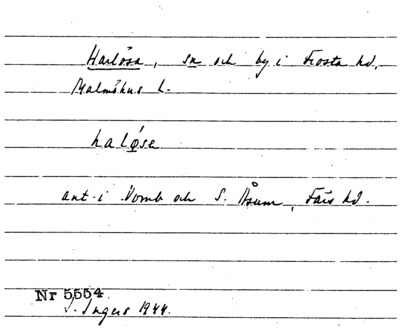 Harlösa, sn och by i Frosta hd,
Malmöhus l.
haløse
ant. i Vomb och S. Åsum, Färs hd.
Nr 5554
I. Ingers 1944.